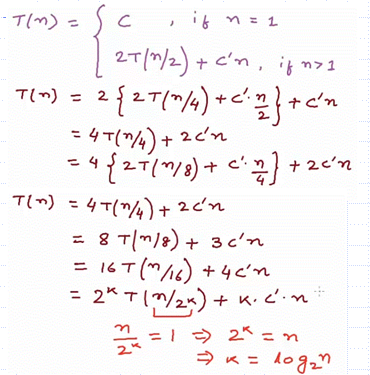 T(n) = { C , if n = 1
2T(n/2) + C'n , if n>1
T(n) = 2 { 2T(n/4) + C'·n/2 } + C'n
= 4T(n/4) + 2C'n
= 4 { 2T(n/8) + C'·n/4 } + 2C'n
T(n) = 4T(n/4) + 2C'n
= 8 T(n/8) + 3C'n
= 16T(n/16) + 4C'n
= 2^K T(n/2^K) + K·C'·n
n/2^K = 1 ⇒ 2^K = n
⇒ K = log₂n